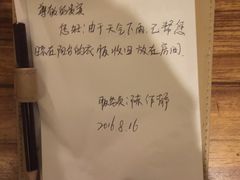 尊敬的宾客
您好:由于天气下雨,已帮您
晾在阳台的衣服收回放在房间.
服务员:陈作静
2016.8.16